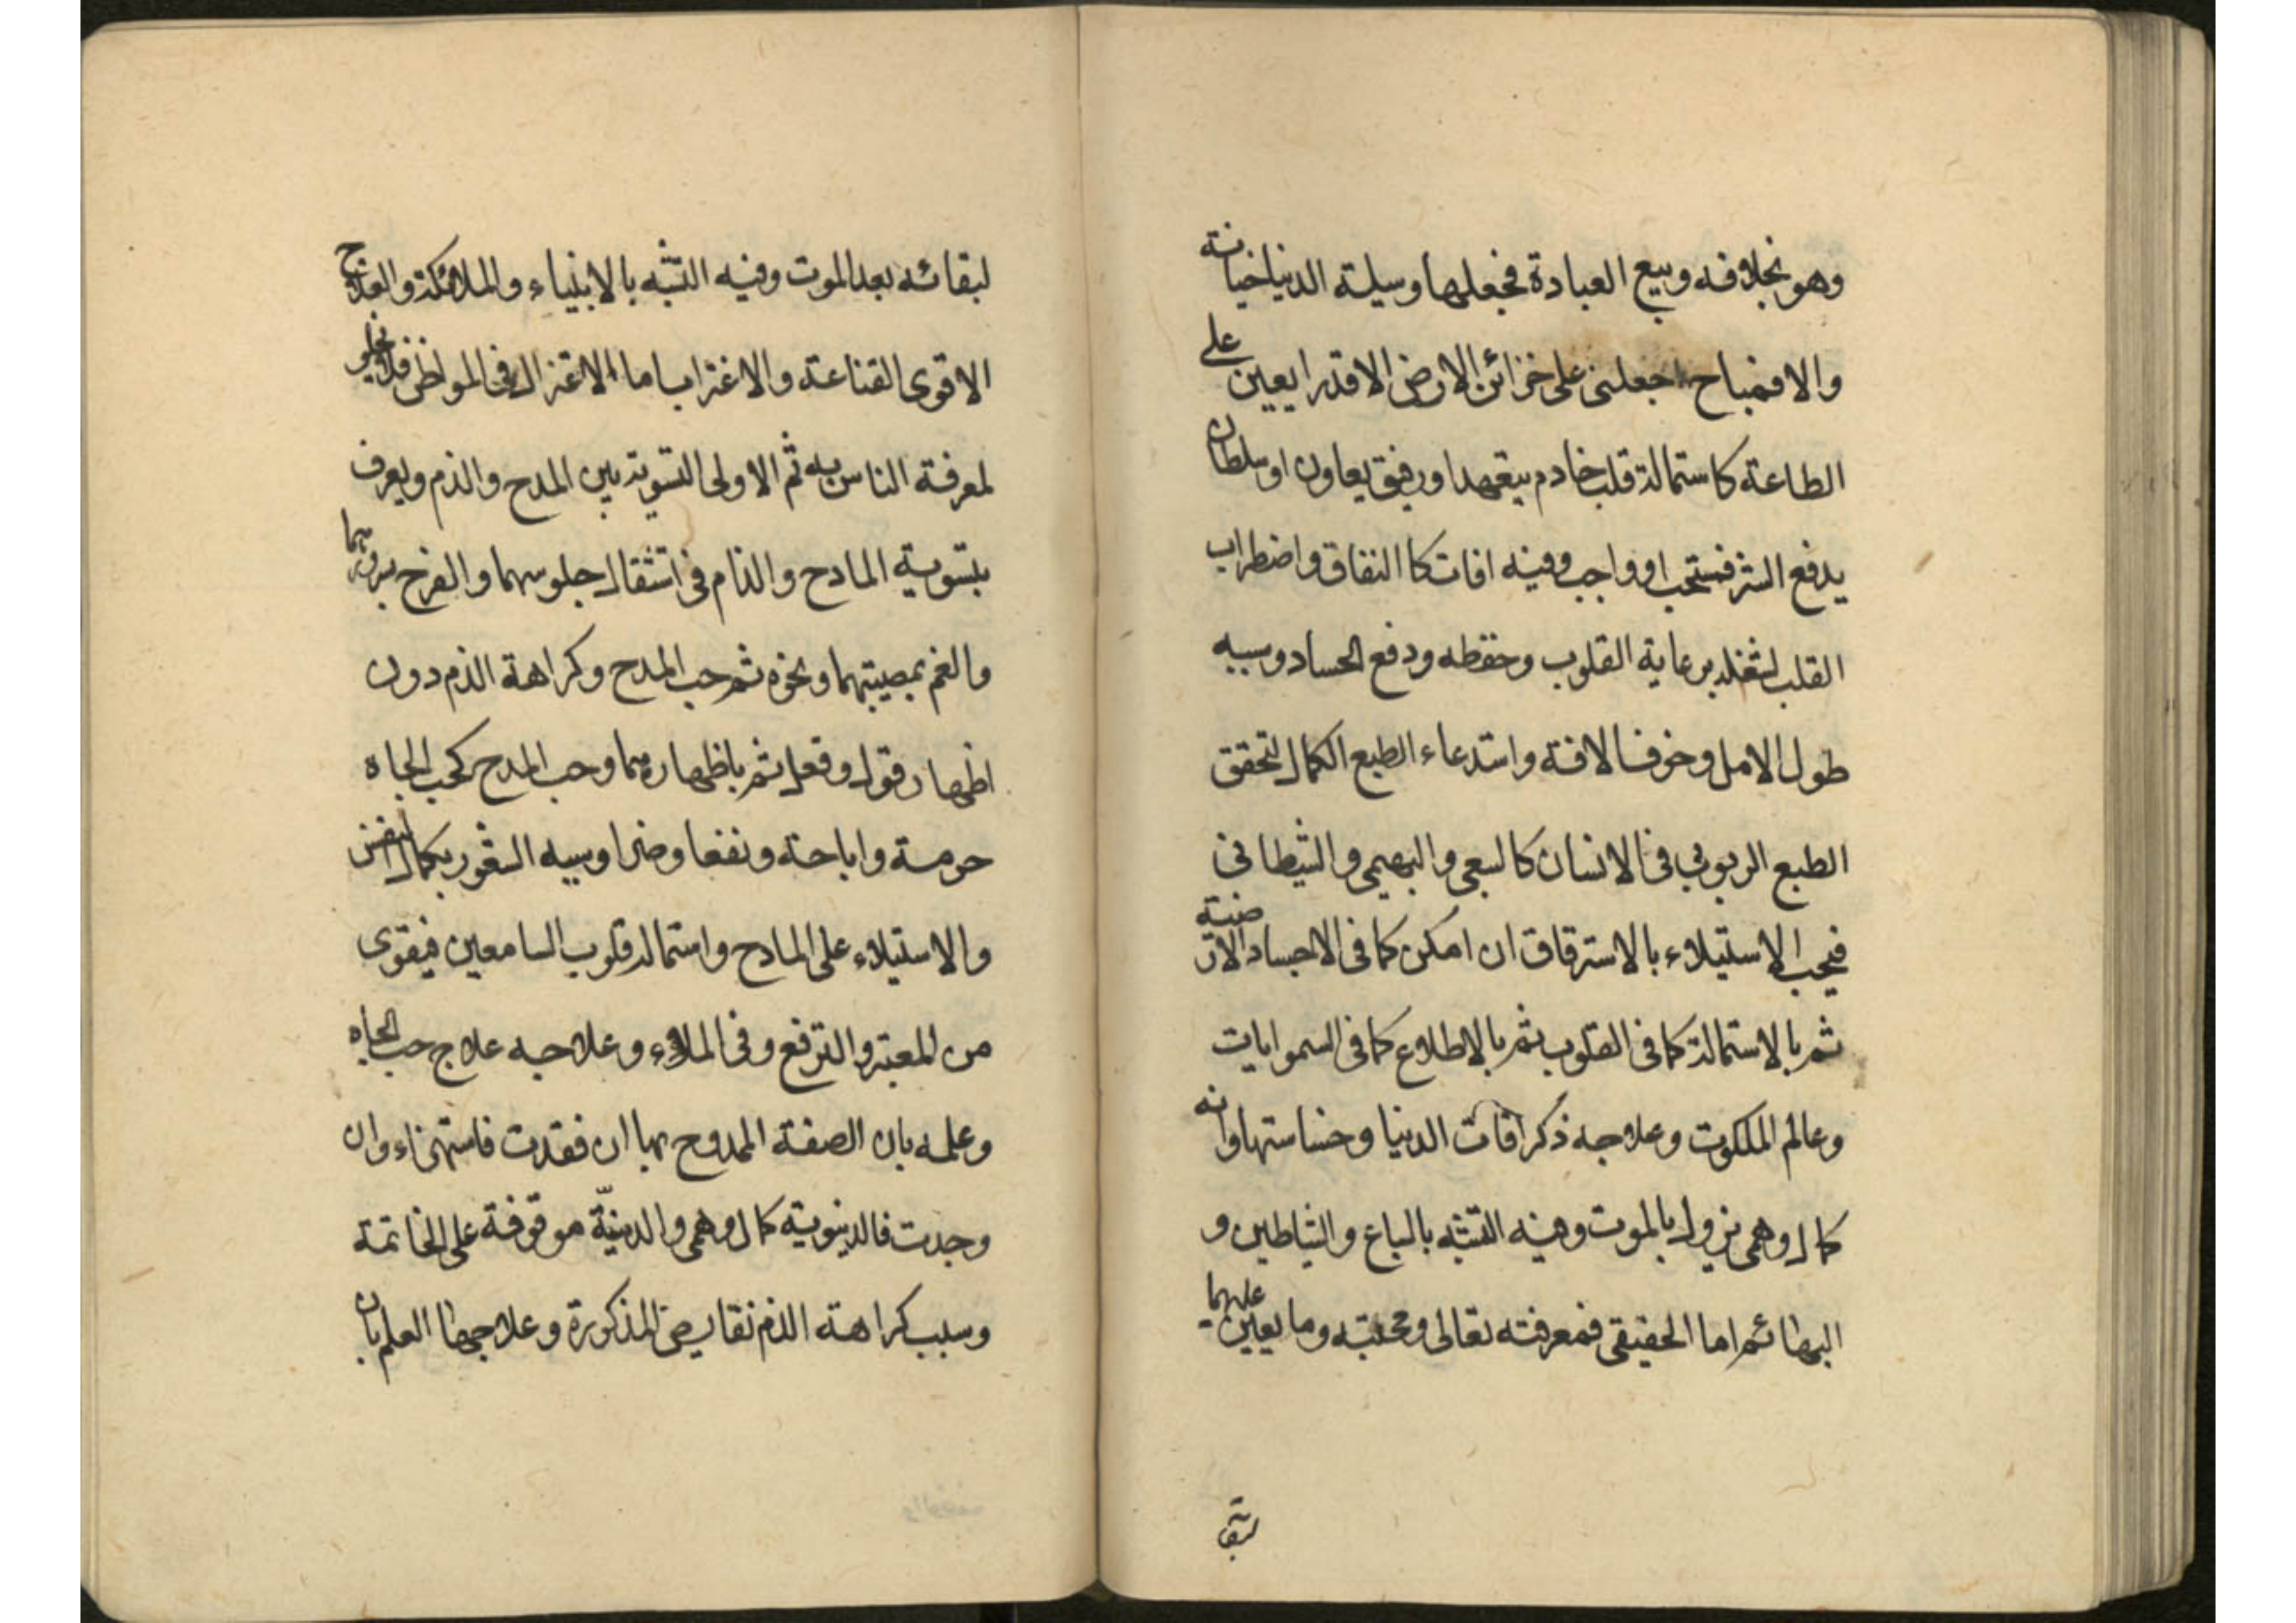 وهو بخلافه وبيع العبادة فجعلها وسيلة الدنيا خيانة
والا فمباح اجعلنى على خزائن الارض الا قدرا يعين على
الطاعة كاستمالة قلب خادم يتعهد اورفيق يعاون اوسلطان
يدفع الشر فمستحب او واجب وفيه افات كا النفاق واضطراب
القلب لشغله برعاية القلوب وحفظه ودفع الحساد وسببه
طول الامل وخوف الافة واستدعاء الطبع الكمال لتحقق
الطبع الربوبي فى الانسان كالسبعى والبهيمى والشيطانى
فيحب الاستيلاء بالاسترقاق ان امكن كما فى الاجساد الارضية
ثم بالاستمالة كما فى القلوب ثم بالاطلاع كما فى السموايات
وعالم الملكوت وعلاجه ذكر افات الدنيا وخساستها وانه
كمال وهمى يزول بالموت وفيه التشبه بالسباع والشياطين و
البهائم اما الحقيقى فمعرفته تعالى ومحبته وما يعين عليهما
لبقا
لبقائه بعد الموت وفيه التشبه بالابنياء والملائكة والعلاج
الاقوى القناعة والاغتراب اما الاعتزال فى المواطن فلا يخلو
لمعرفة الناس به ثم الاولى التسوية بين المدح والذم ويعرف
بتسوية المادح والذام فى استثقال جلوسهما والفرح بسرورهما
والغم بمصيبتهما ونحوه ثم حب المدح وكراهة الذم دون
اظهار قول وفعل ثم باظهارهما وحب المدح كحب الجاه
حرمة واباحة ونفعا وضرا وسببه الشعور بكمال النفس
والاستيلاء على المادح واستمالة قلوب السامعين فيقوى
من المعتبر والترفع وفى الملاء وعلاجه علاج حب الجاه
وعلمه بان الصفة الممدوح بها ان فقدت فاستهزاء وان
وجدت فالدينوية كمال وهمى والدينيّة موقوفة على الخاتمة
وسبب كراهة الذم نقايض المذكورة وعلاجها العلم بان